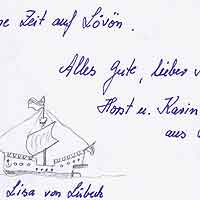 ne Zeit auf Lövön.
Alles Gute, lieber
Horst u. Karin
aus
Lisa von Lübeck